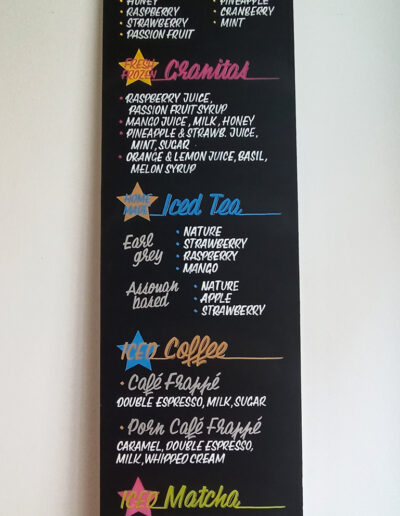 • HONEY • PINEAPPLE
• RASPBERRY • CRANBERRY
• STRAWBERRY • MINT
• PASSION FRUIT
FRESH FROZEN Granitas
• RASPBERRY JUICE,
PASSION FRUIT SYRUP
• MANGO JUICE, MILK, HONEY
• PINEAPPLE & STRAWB. JUICE,
MINT, SUGAR
• ORANGE & LEMON JUICE, BASIL,
MELON SYRUP
HOME MADE Iced Tea
Earl grey
• NATURE
• STRAWBERRY
• RASPBERRY
• MANGO
Assouan based
• NATURE
• APPLE
• STRAWBERRY
ICED Coffee
• Café Frappé
DOUBLE ESPRESSO, MILK, SUGAR
• Porn Café Frappé
CARAMEL, DOUBLE ESPRESSO,
MILK, WHIPPED CREAM
ICED Matcha